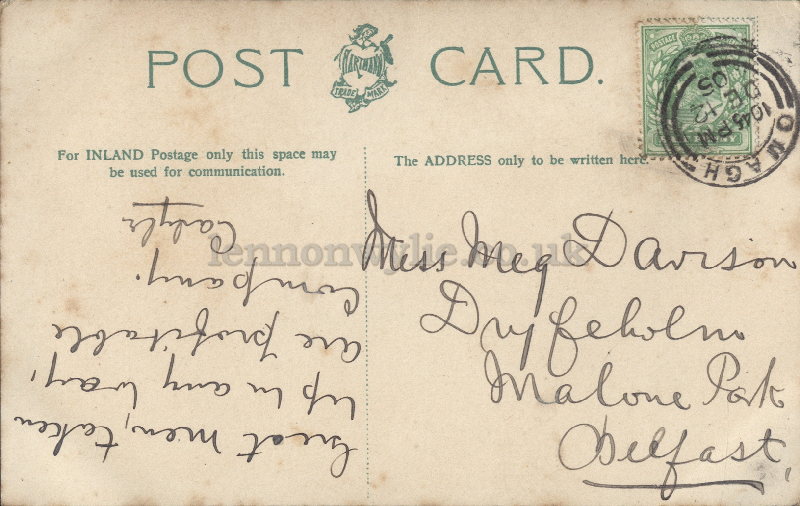 POST CARD.
HARTMANN
TRADE MARK
POSTAGE
OMAGH
10.45 PM
DE 12
05
For INLAND Postage only this space may
be used for communication.
The ADDRESS only to be written here.
lennonwylie.co.uk
Great men, taken
up in any way,
are profitable
Company.
Carlyle
Miss Meg Davison
Dryfeholm
Malone Park
Belfast